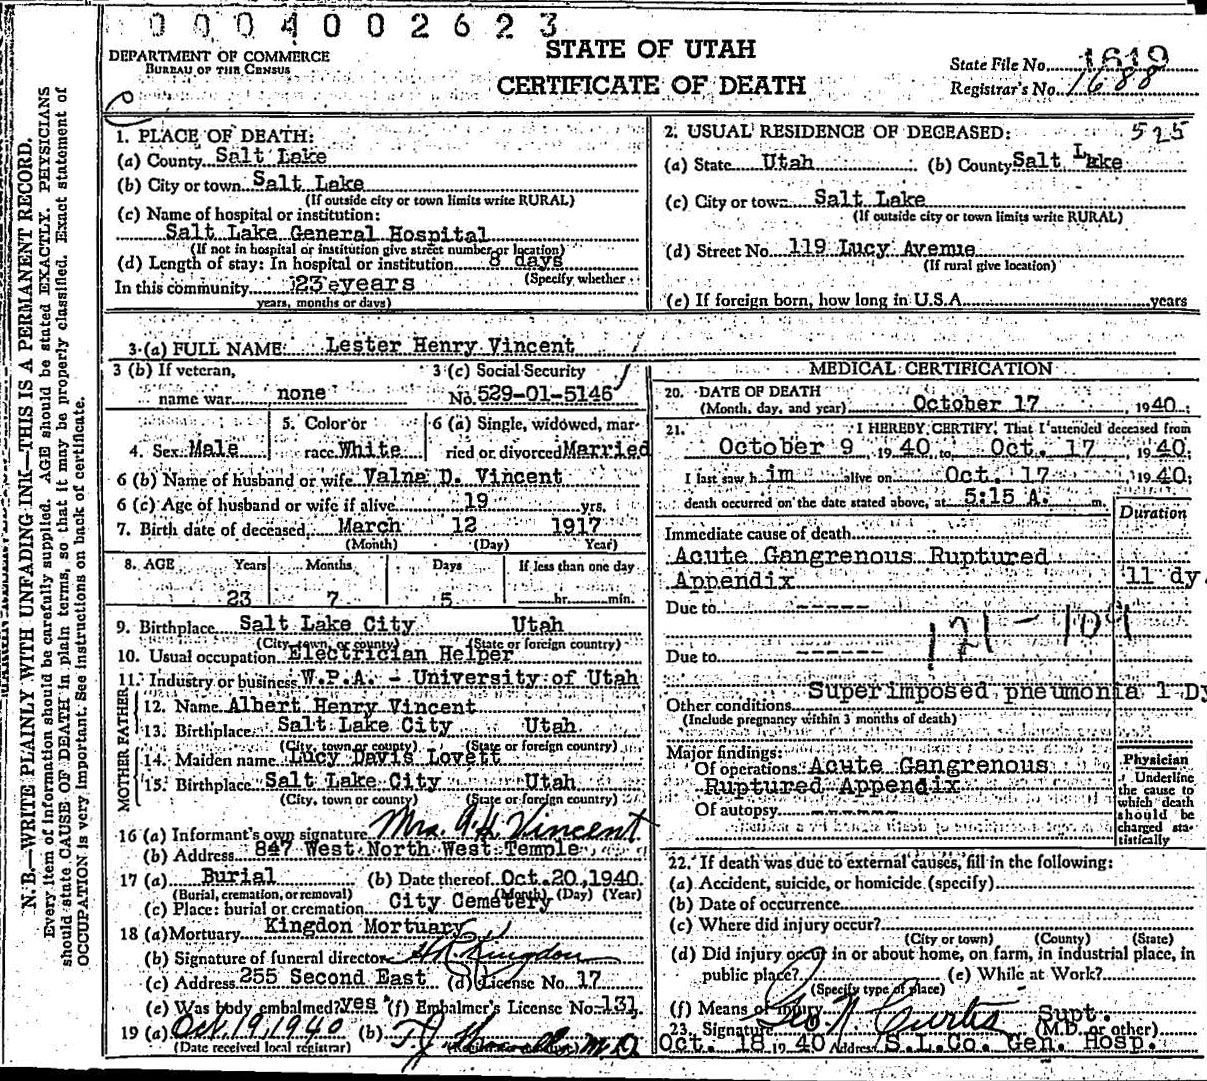 0004002623
DEPARTMENT OF COMMERCE
BUREAU OF THE CENSUS
STATE OF UTAH
CERTIFICATE OF DEATH
State File No. 1619
Registrar's No. 1688
N. B.—WRITE PLAINLY WITH UNFADING INK—THIS IS A PERMANENT RECORD.
Every item of information should be carefully supplied. AGE should be stated EXACTLY. PHYSICIANS
should state CAUSE OF DEATH in plain terms, so that it may be properly classified. Exact statement of
OCCUPATION is very important. See instructions on back of certificate.
1. PLACE OF DEATH:
(a) County Salt Lake
(b) City or town Salt Lake
(If outside city or town limits write RURAL)
(c) Name of hospital or institution:
Salt Lake General Hospital
(If not in hospital or institution give street number or location)
(d) Length of stay: In hospital or institution 8 days
(Specify whether
In this community 23 years
years, months or days)
2. USUAL RESIDENCE OF DECEASED: 525
(a) State Utah (b) County Salt Lake
(c) City or town Salt Lake
(If outside city or town limits write RURAL)
(d) Street No. 119 Lucy Avenue
(If rural give location)
(e) If foreign born, how long in U.S.A. years
3 (a) FULL NAME: Lester Henry Vincent
3 (b) If veteran,
name war none
3 (c) Social Security
No. 529-01-5146
4. Sex Male
5. Color or
race White
6 (a) Single, widowed, mar-
ried or divorced Married
6 (b) Name of husband or wife Valna D. Vincent
6 (c) Age of husband or wife if alive 19 yrs.
7. Birth date of deceased March 12 1917
(Month) (Day) Year)
8. AGE Years Months Days If less than one day
23 7 5 hr. min.
9. Birthplace Salt Lake City Utah
(City, town, or county) (State or foreign country)
10. Usual occupation Electrician Helper
11. Industry or business W.P.A. - University of Utah
FATHER
12. Name Albert Henry Vincent
13. Birthplace Salt Lake City Utah
(City, town or county) (State or foreign country)
MOTHER
14. Maiden name Lucy Davis Lovett
15. Birthplace Salt Lake City Utah
(City, town or county) (State or foreign country)
16 (a) Informant's own signature Mrs. A H Vincent
(b) Address 847 West North West Temple
17 (a) Burial (b) Date thereof Oct. 20, 1940
(Burial, cremation, or removal) (Month) (Day) (Year)
(c) Place: burial or cremation City Cemetery
18 (a) Mortuary Kingdon Mortuary
(b) Signature of funeral director Kingdon
(c) Address 255 Second East (d) License No. 17
(e) Was body embalmed? yes (f) Embalmer's License No. 131
19 (a) Oct. 19, 1940 (b) M.D.
(Date received local registrar)
MEDICAL CERTIFICATION
20. DATE OF DEATH
(Month, day, and year) October 17 1940;
21. I HEREBY CERTIFY, That I attended deceased from
October 9 1940, to Oct. 17 1940;
I last saw him alive on Oct. 17 1940;
death occurred on the date stated above, at 5:15 A. m.
Duration
Immediate cause of death
Acute Gangrenous Ruptured
Appendix 11 dy.
Due to -----
121 - 109
Due to ------
Superimposed pneumonia 1 Dy
Other conditions
(Include pregnancy within 3 months of death)
Major findings:
Of operations Acute Gangrenous
Ruptured Appendix
Of autopsy ------
Physician
Underline
the cause to
which death
should be
charged sta-
tistically
22. If death was due to external causes, fill in the following:
(a) Accident, suicide, or homicide (specify)
(b) Date of occurrence
(c) Where did injury occur?
(City or town) (County) (State)
(d) Did injury occur in or about home, on farm, in industrial place, in
public place? (e) While at Work?
(Specify type of place)
(f) Means of injury
23. Signature Geo N Curtis Supt.
(M.D. or other)
Oct. 18 1940 Address S.L.Co. Gen. Hosp.